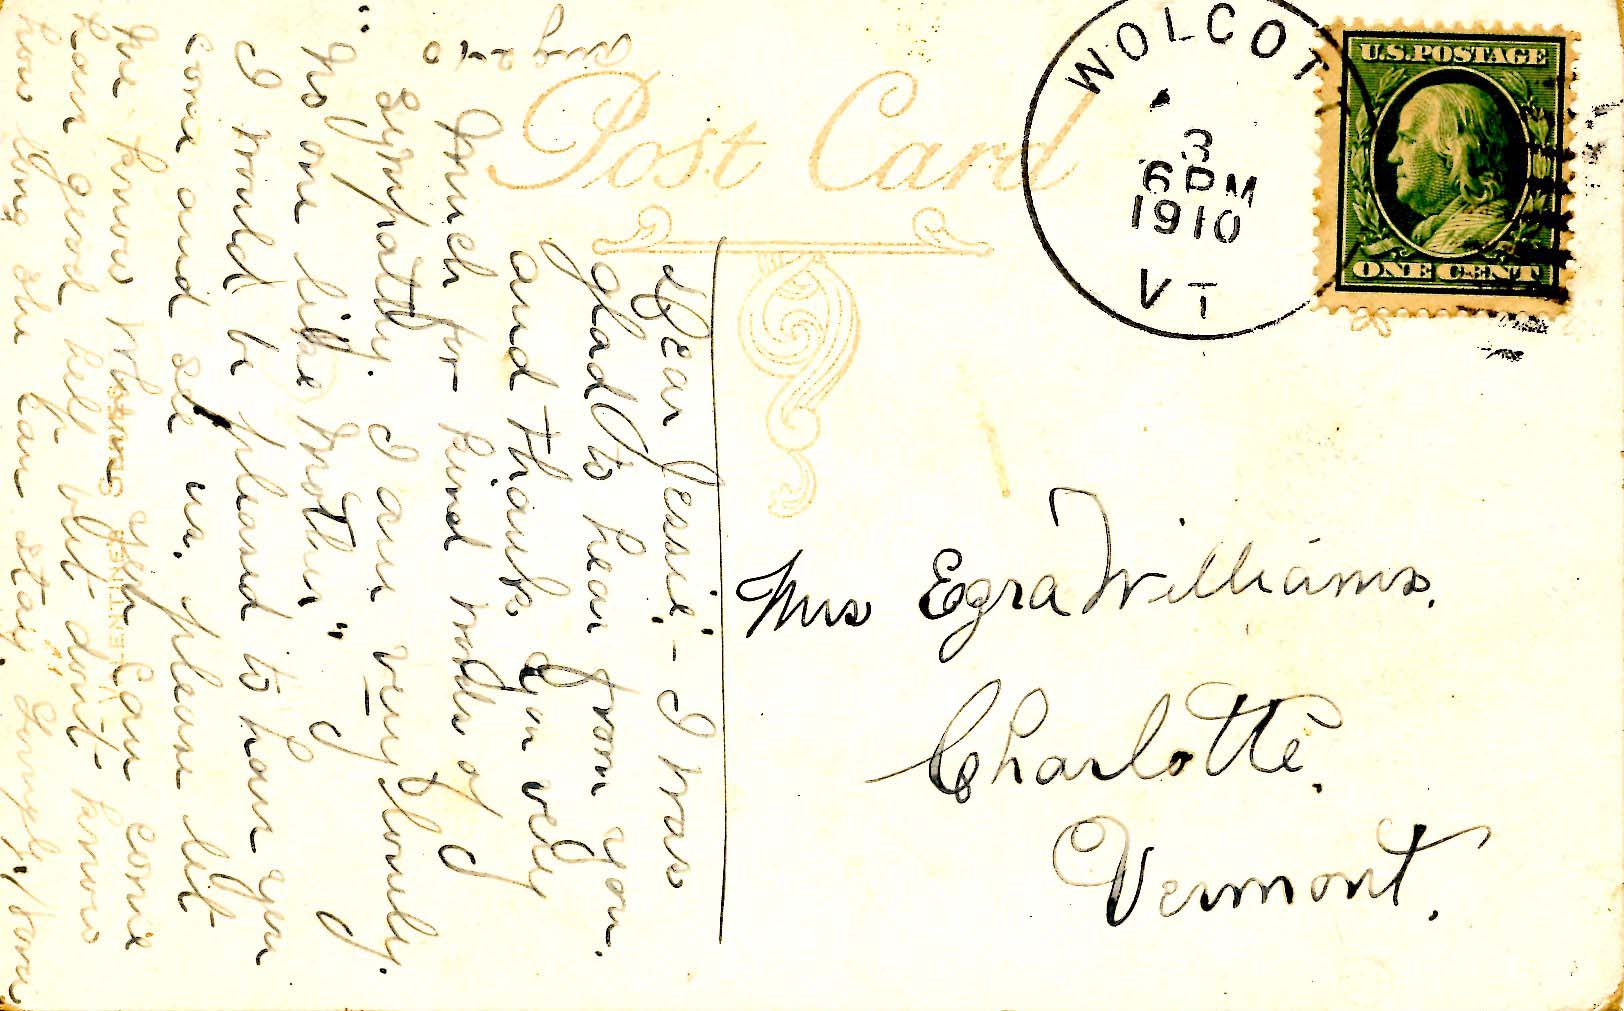 Post Card
WOLCOTT
3
6 PM
1910
VT
U.S. POSTAGE
ONE CENT
Mrs Egra Williams.
Charlotte.
Vermont.
Aug 2-10
Dear Jessie: - I was
glad to hear from you.
and thank you very
much for kind words of
sympathy. I am very lonely.
"No one like Mother"
I would be pleased to have you
come and see us. please let
me know when you can come
have good help but don't know
how long she can stay. Lovingly,